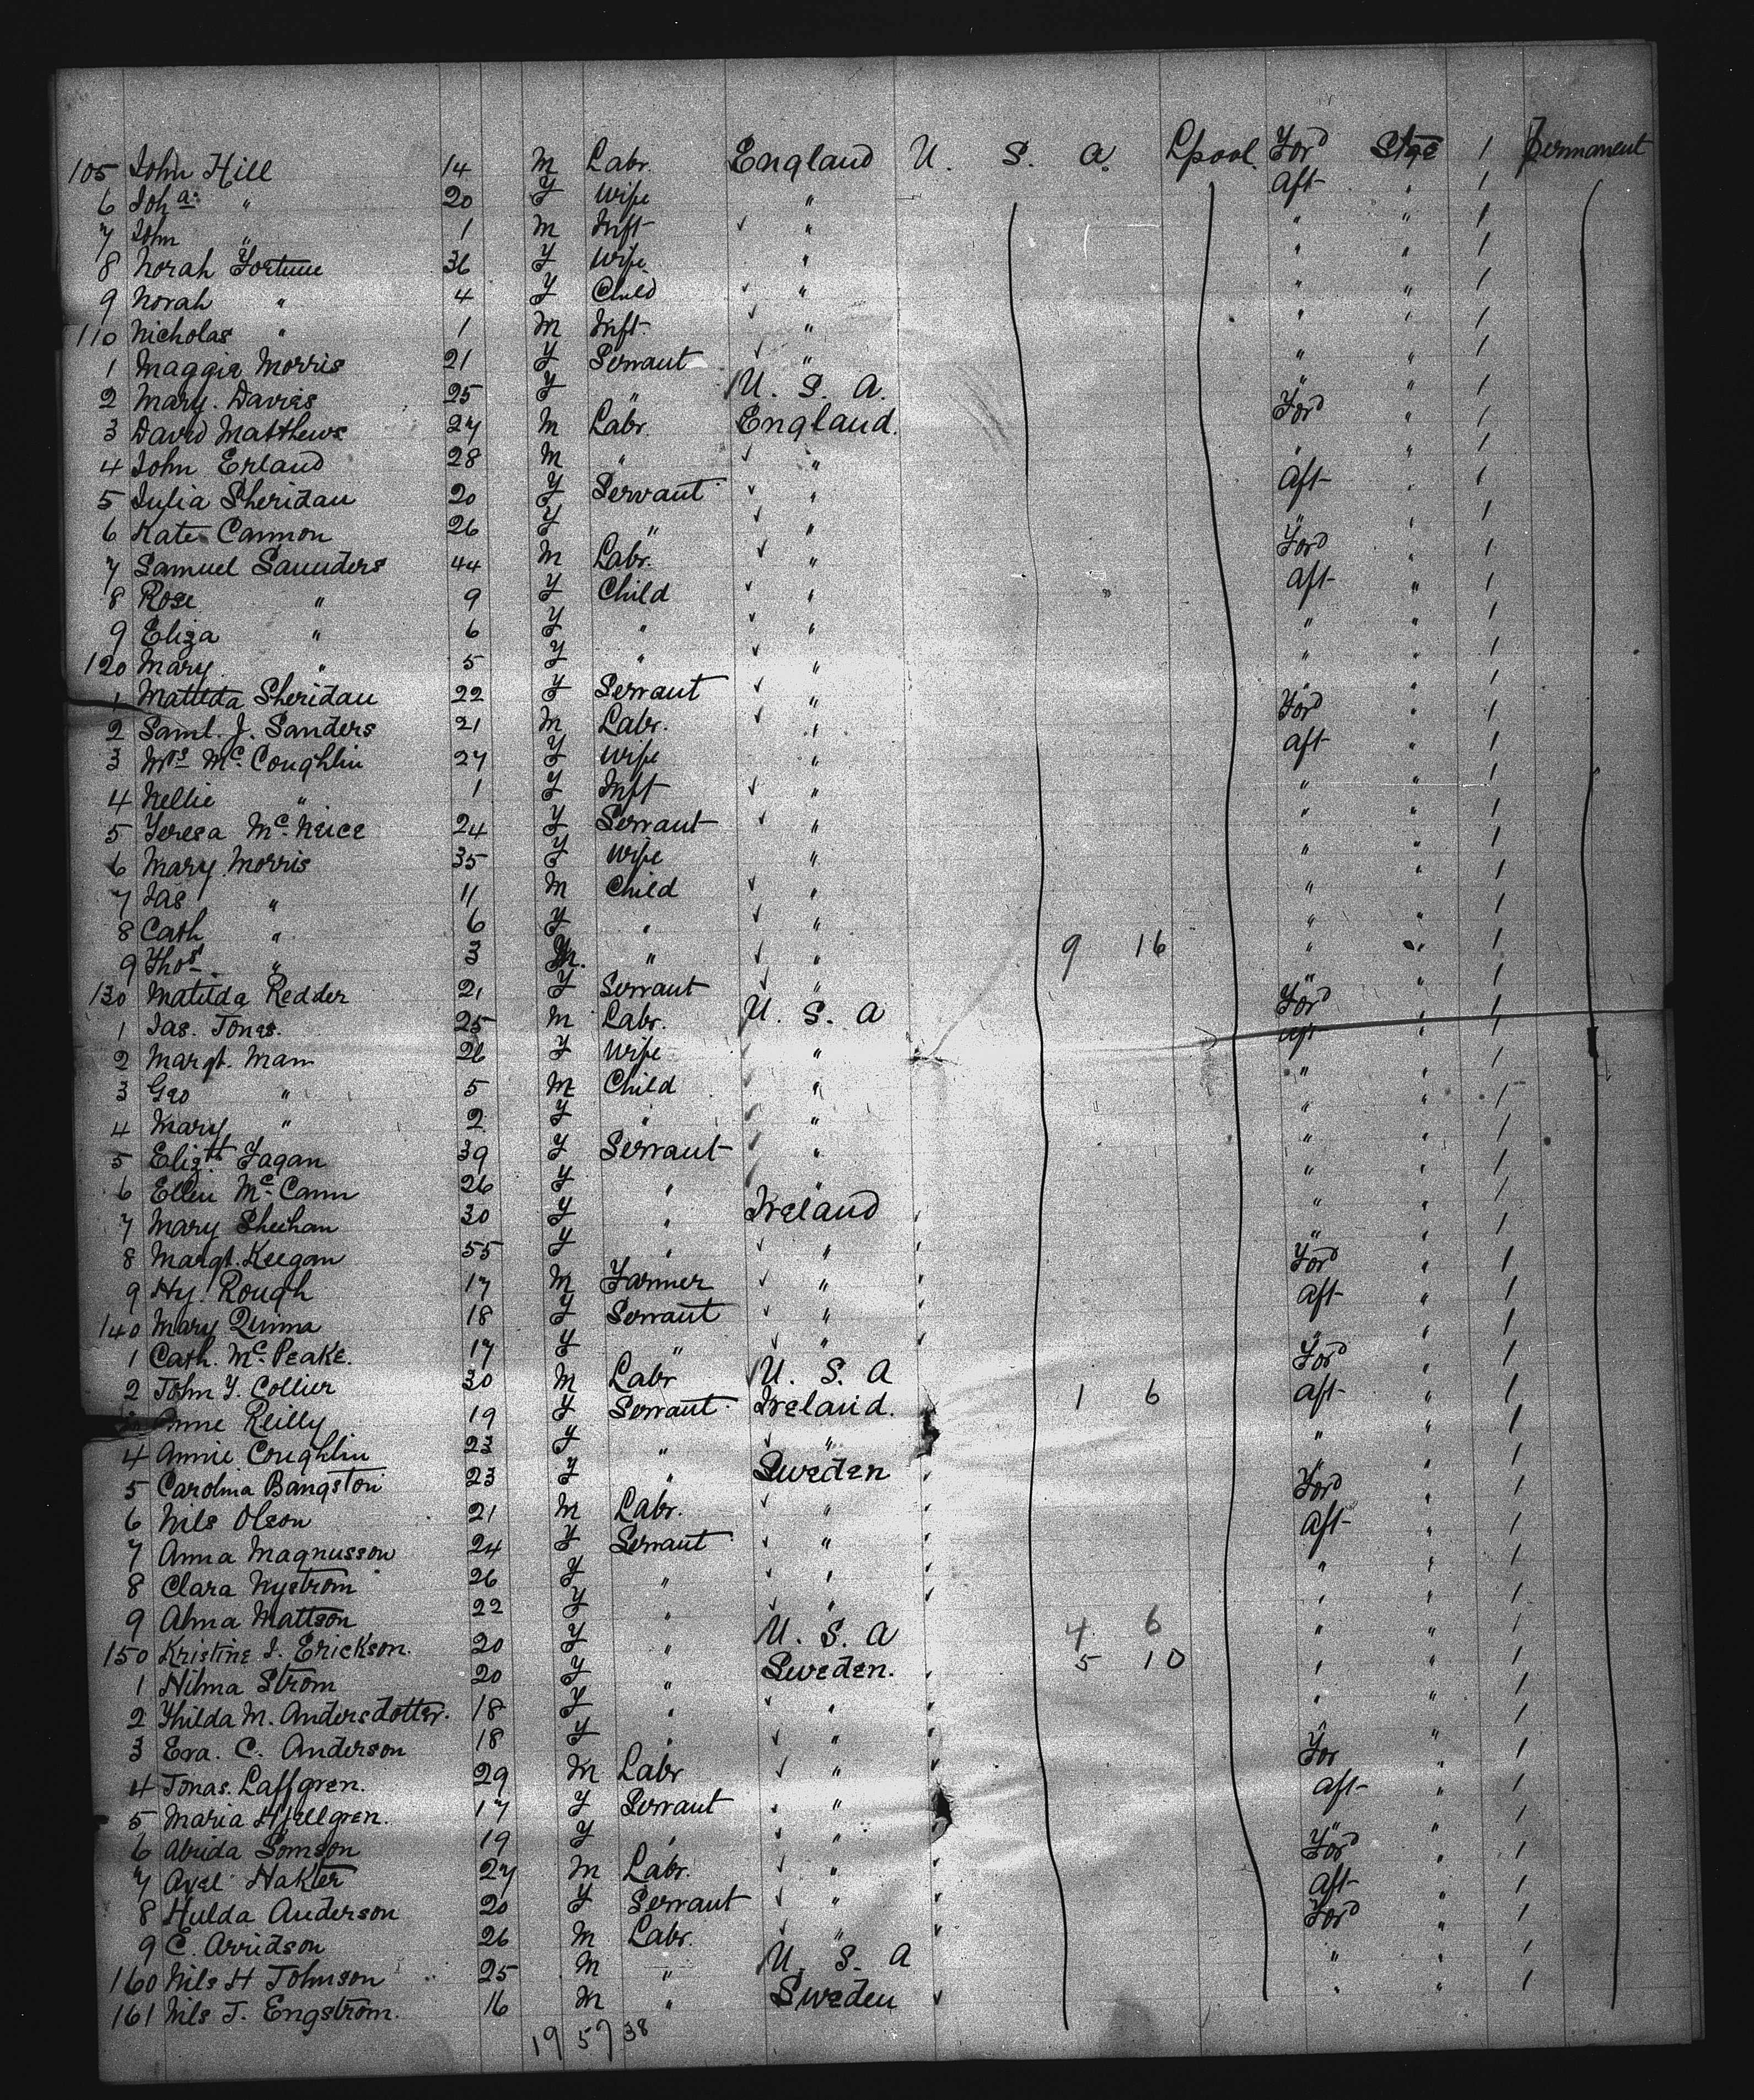 105 John Hill 14 M Labr. England U. S. A. Lpool Ford Stge 1 Permanent
6 Joh a: " 20 F Wife " Aft " 1
7 John " 1 M Inft " " " 1
8 Norah Fortune 36 F Wife " " " 1
9 Norah " 4 F Child " " " 1
110 Nicholas " 1 M Inft. " " " 1
1 Maggie Morris 21 F Servant " " " 1
2 Mary. Davies 25 F " U. S. A. " " 1
3 David Matthews 27 M Labr. England. Ford " 1
4 John Erland 28 M " " " " 1
5 Julia Sheridan 20 F Servant " Aft " 1
6 Kate Cannon 26 F " " " " 1
7 Samuel Saunders 44 M Labr. " Ford " 1
8 Rose " 9 F Child " Aft " 1
9 Eliza " 6 F " " " " 1
120 Mary " 5 F " " " " 1
1 Matilda Sheridan 22 F Servant " " " 1
2 Saml. J. Sanders 21 M Labr. " Ford " 1
3 Mrs McCoughlin 27 F Wife " Aft " 1
4 Nellie " 1 F Inft " " " 1
5 Teresa McNeice 24 F Servant " " " 1
6 Mary Morris 35 F Wife " " " 1
7 Jas " 11 M Child " " " 1
8 Cath " 6 F " " " " 1
9 Thos. " 3 M. " " 9 16 " " 1
130 Matilda Redder 21 F Servant " " " 1
1 Jas. Jones. 25 M Labr. U. S. A Ford " 1
2 Margt. Mam 26 F Wife " Aft " 1
3 Geo " 5 M Child " " " 1
4 Mary " 2 F " " " " 1
5 Elizth Fagan 39 F Servant " " " 1
6 Ellen McCann 26 F " " " " 1
7 Mary Sheihan 30 F " Ireland " " 1
8 Margt. Keegan 55 F " " " " 1
9 Hy. Rough 17 M Farmer " Ford " 1
140 Mary Quinna 18 F Servant " Aft " 1
1 Cath. McPeake. 17 F " " " " 1
2 John F. Collier 30 M Labr U. S. A Ford " 1
Anne Reilly 19 F Servant Ireland. 1 6 Aft " 1
4 Annie Coughlin 23 F " " " " 1
5 Carolina Bangston 23 F " Sweden " " 1
6 Nils Olson 21 M Labr. " Ford " 1
7 Anna Magnusson 24 F Servant " Aft " 1
8 Clara Nystrom 26 F " " " " 1
9 Alma Mattson 22 F " " " " 1
150 Kristine J. Erickson. 20 F " U. S. A 4 6 " " 1
1 Hilma Strom 20 F " Sweden. 5 10 " " 1
2 Thilda M. Andersdotter. 18 F " " " " 1
3 Eva. C. Anderson 18 F " " " " 1
4 Jonas. Laffgren. 29 M Labr " For " 1
5 Maria Hjellgren. 17 F Servant " Aft " 1
6 Alvida Somson 19 F " " " " 1
7 Axel Hakter 27 M Labr. " Ford " 1
8 Hulda Anderson 20 F Servant " Aft " 1
9 C. Arvidson 26 M Labr. " Ford " 1
160 Nils H Johnson 25 M " U. S. A " " 1
161 Nils J. Engstrom. 16 M " Sweden " " 1
19 57 38